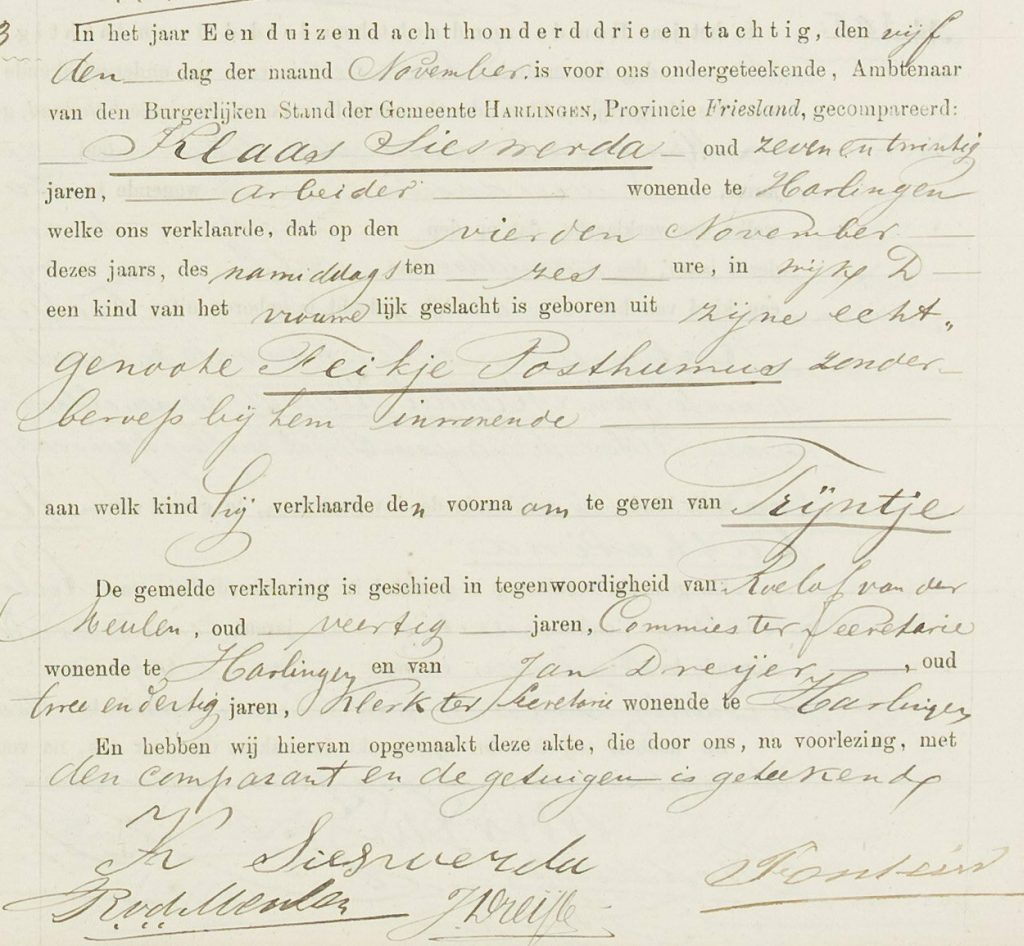 3
In het jaar Een duizend acht honderd drie en tachtig, den vijf
den dag der maand November is voor ons ondergeteekende, Ambtenaar
van den Burgerlijken Stand der Gemeente HARLINGEN, Provincie Friesland, gecompareerd:
Klaas Sieswerda oud zeven en twintig
jaren, arbeider wonende te Harlingen
welke ons verklaarde, dat op den vierden November
dezes jaars, des namiddags ten zes ure, in wijk D
een kind van het vrouwelijk geslacht is geboren uit zijne echt„
genoote Feikje Posthumus zonder
beroep bij hem inwonende
aan welk kind hij verklaarde den voornaam te geven van Trijntje
De gemelde verklaring is geschied in tegenwoordigheid van Roelof van der
Meulen, oud veertig jaren, Commies ter Secretarie
wonende te Harlingen en van Jan Dreijer, oud
twee en dertig jaren, Klerk ter Secretarie wonende te Harlingen
En hebben wij hiervan opgemaakt deze akte, die door ons, na voorlezing, met
den comparant en de getuigen is geteekend
K Sieswerda
Fontein
R v d Meulen J Dreijer